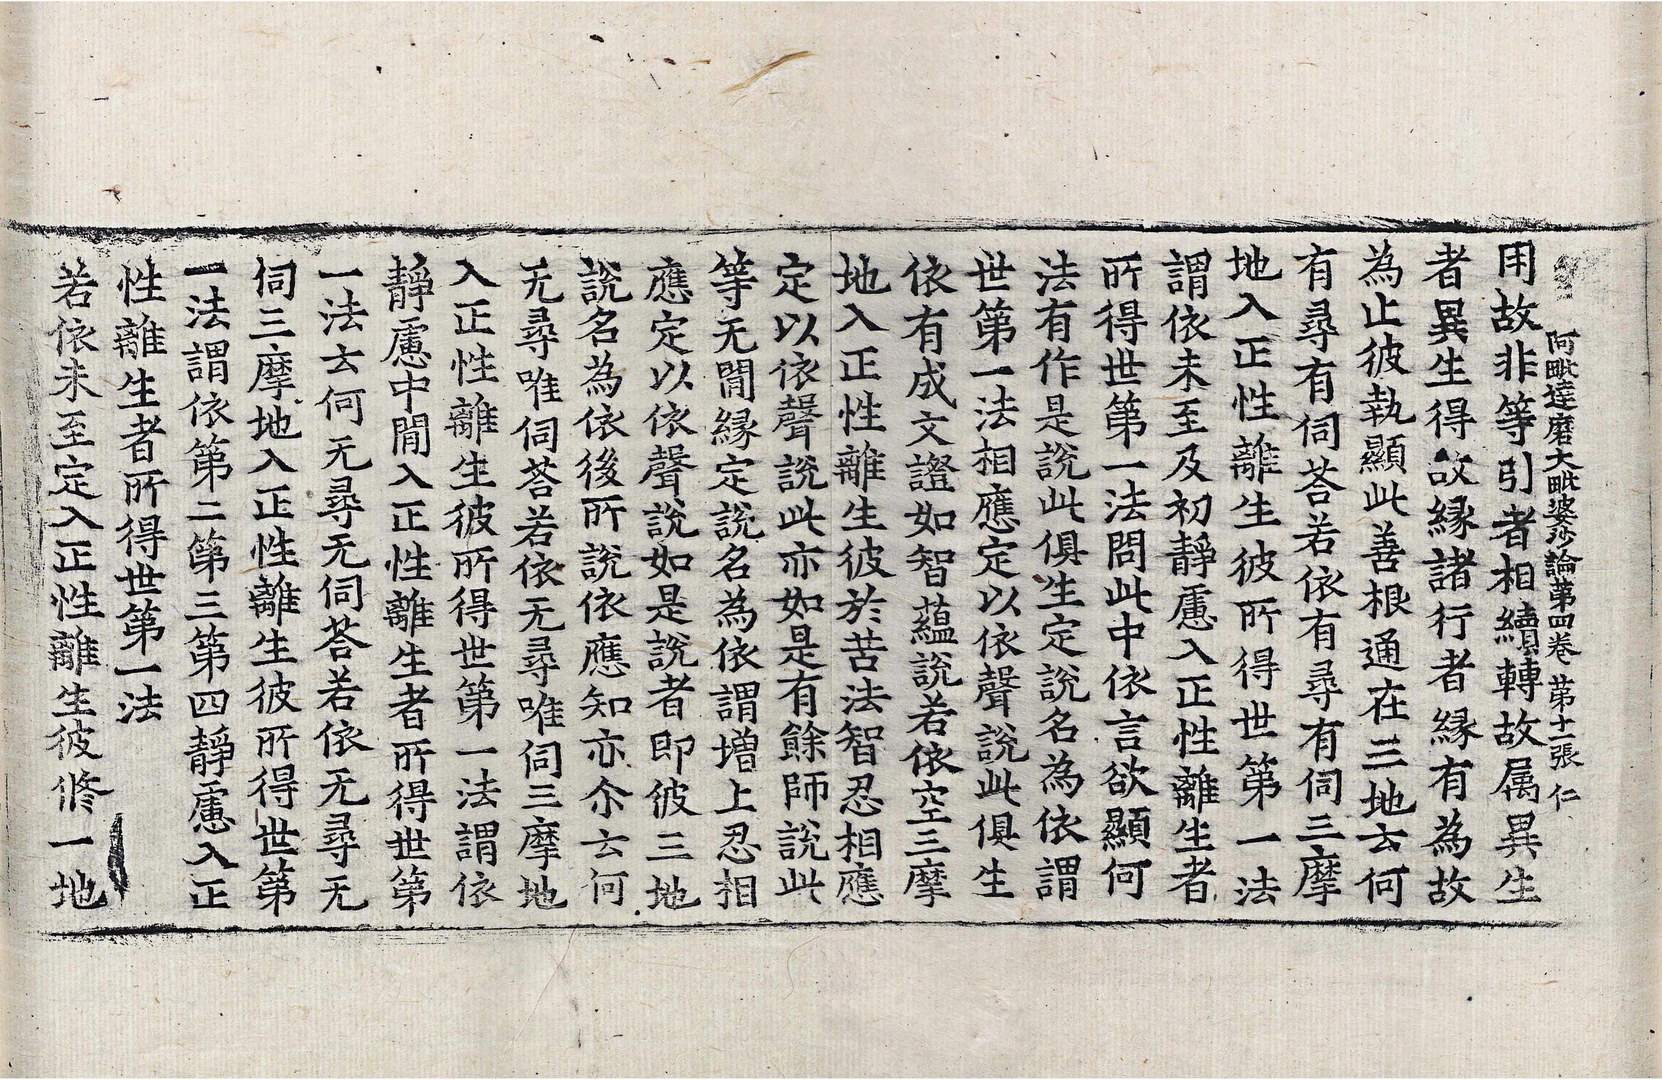 阿毗達磨大毗婆沙論第四卷 第十一張 仁
用故非等引者相續轉故属異生
者異生得故緣諸行者緣有為故
為止彼執顯此善根通在三地云何
有尋有伺荅若依有尋有伺三摩
地入正性離生彼所得世第一法
謂依未至及初靜慮入正性離生者
所得世第一法問此中依言欲顯何
法有作是說此俱生定說名為依謂
世第一法相應定以依聲說此俱生
依有成文證如智蘊說若依空三摩
地入正性離生彼於苦法智忍相應
定以依聲說此亦如是有餘師說此
等无閒緣定說名為依謂增上忍相
應定以依聲說如是說者即彼三地
說名為依後所說依應知亦尒云何
无尋唯伺荅若依无尋唯伺三摩地
入正性離生彼所得世第一法謂依
靜慮中閒入正性離生者所得世第
一法云何无尋无伺荅若依无尋无
伺三摩地入正性離生彼所得世第
一法謂依第二第三第四靜慮入正
性離生者所得世第一法
若依未至定入正性離生彼修一地